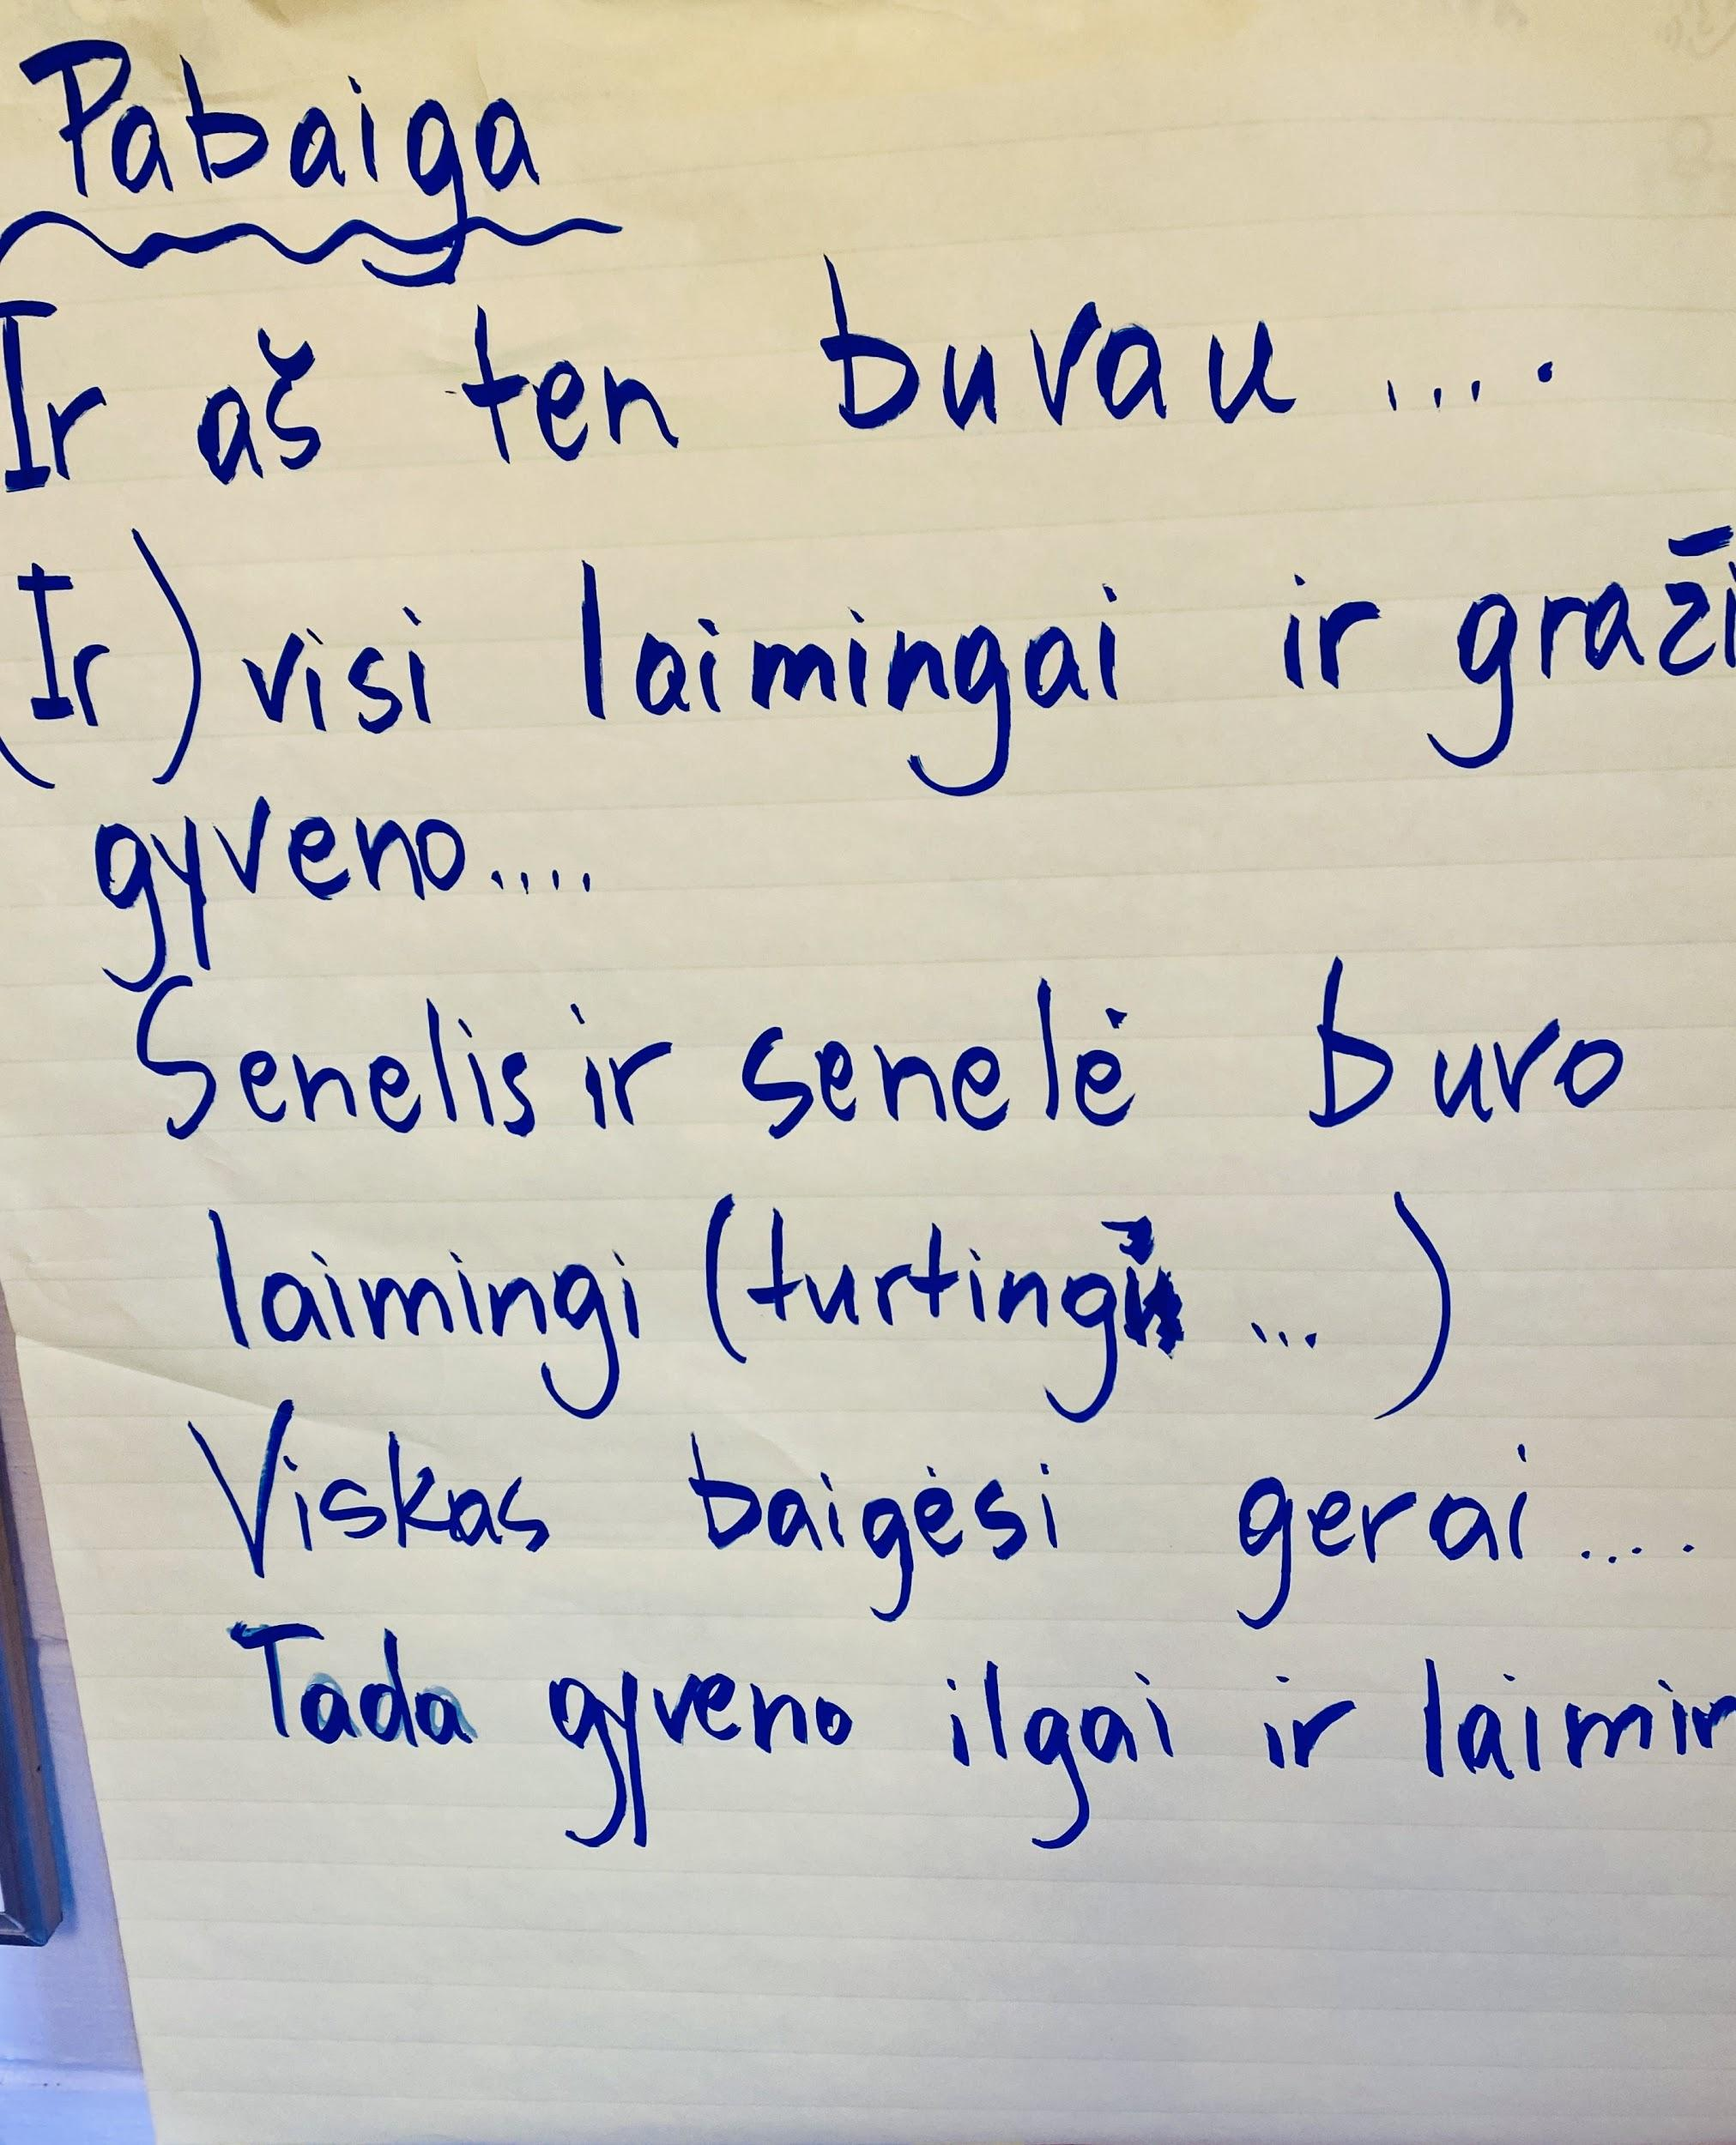 Pabaiga
Ir aš ten buvau ....
(Ir) visi laimingai ir graži
gyveno....
Senelis ir senelė buvo
laimingi (turtingi ...)
Viskas baigėsi gerai ....
Tada gyveno ilgai ir laimin